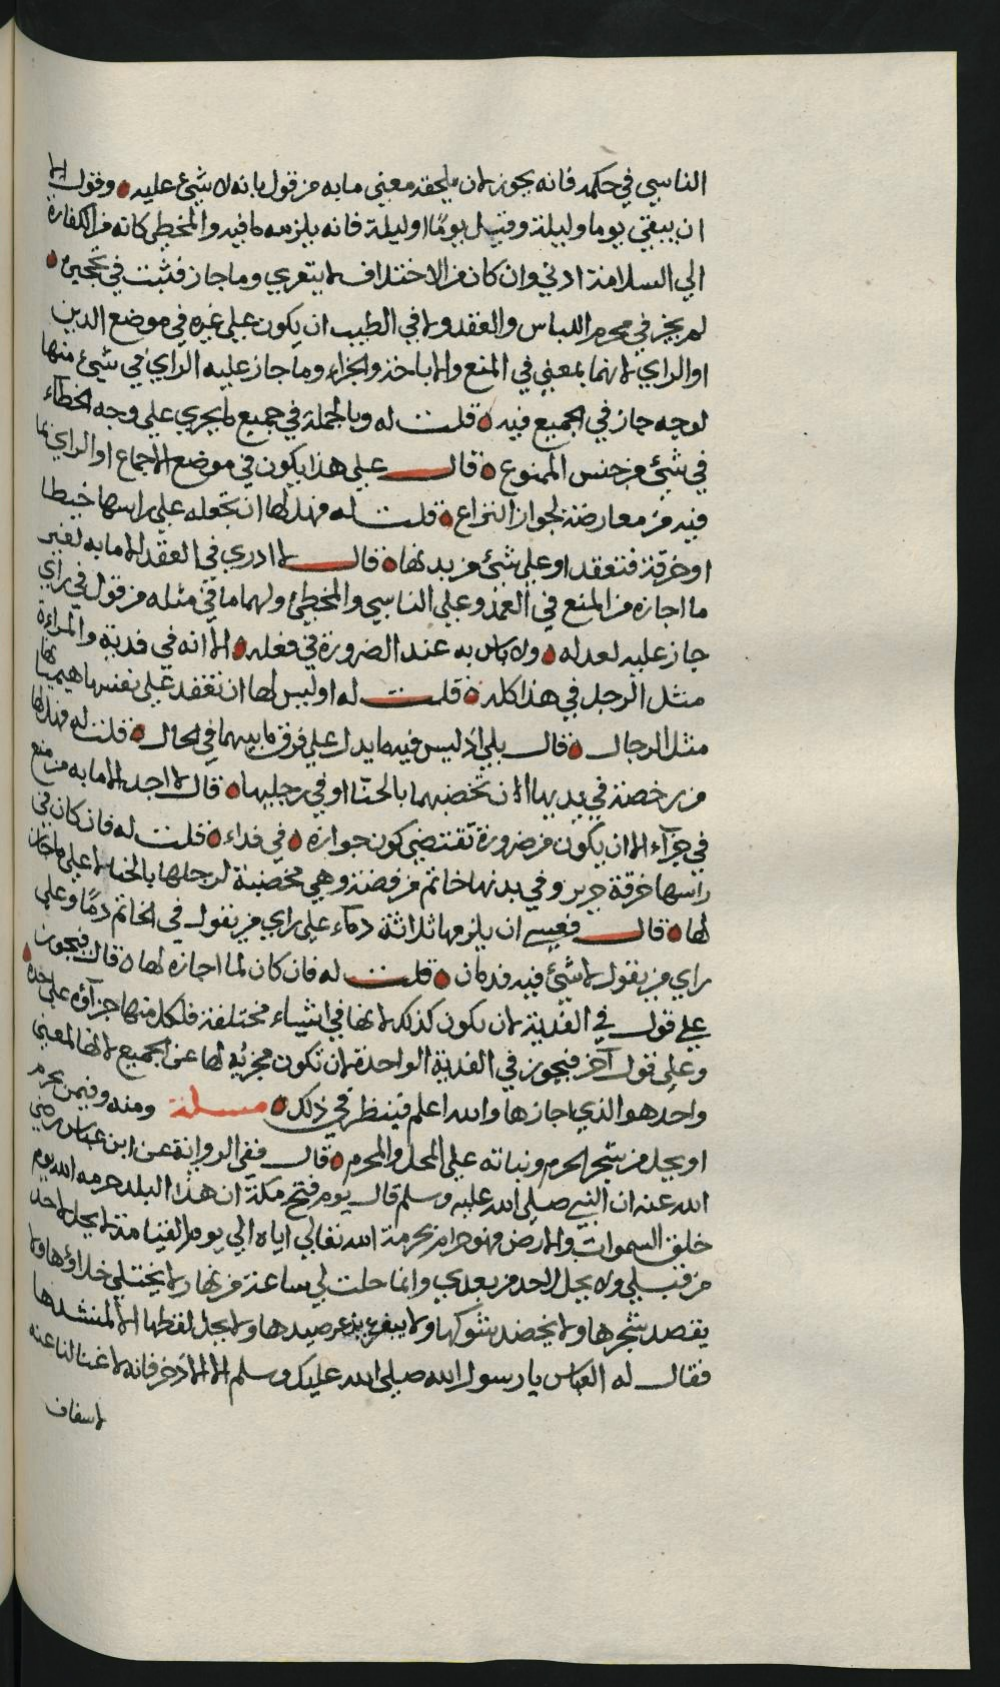 الناسي في حكمه فانه يجوز لان يلحقه معنى ما به من قول بانه لا شيء عليه وقول الا
ان يبقى يوما وليلة وقيل يوما او ليلة فانه يلزمه ما فيه والمخطي كانه في الكفارة
الي السلامة ادني وان كان من الاختلاف لا يتعري وما جاز فثبت في تحجيره
لم يجز في محرم اللباس والعقد ولا في الطيب ان يكون علي غيره في موضع الدين
او الراي لانهما بمعني في المنع والاباحة والجزاء وما جاز عليه الراي في شيء منها
لوجه جاز في الجميع فيه قلت له وبالجملة في جميع ما يجري علي وجه الخطاء
في شيء من جنس الممنوع قال علي هذا يكون في موضع الاجماع او الراي بما
فيه من معارضة لجواز النزاع قلت له فهل لها ان تجعله علي راسها خيطا
او خرقة فتعقد او علي شيء من بدنها قال لا ادري في العقد الا ما به لغير
ما اجازه من المنع في العمد وعلي الناسي والمخطي ولهما ما في مثله من قول في راي
جاز عليه لعدله ولا باس به عند الضرورة في فعله الا انه في فدية والمراءة
مثل الرجل في هذا كله قلت له اوليس لها ان تعقد علي نفسها هميانها
مثل الرجال قال بلي اذ ليس فيه ما يدل علي فرق ما بينهما في الحال قلت له فهل لها
من رخصة في يديها ان تخضبهما بالحنا او في رجليها قال لا اجد الا ما به من منع
في جزآء الا ان يكون من ضرورة تقتضي كون جوازه في فداء قلت له فان كان في
راسها خرقة حرير وفي يدنها خاتم من فضة وهي مخضبة لرجلها بالحنا لا علي ما جاز
لها قال فعسي ان يلزمها ثلاثة دمآء علي راي من يقول في الخاتم دمًا وعلي
راي من يقول لا شيء فيه فدمان قلت له فان كان لما اجازه لها قال فيجوز
علي قول في الفدية لان يكون كذلك لانها في اشياء مختلفة فلكل منها جزآؤه علي حده
وعلي قول آخر فيجوز في الفدية الواحدة لان تكون مجزية لها عن الجميع لانها لمعني
واحد هو الذي اجازها والله اعلم فينظر في ذلك مسئلة ومنه وفيمن يحرم
او يحل من شجر الحرم ونباته علي المحل والمحرم قال ففي الرواية عن ابن عباس رضي
الله عنه ان النبي صلى الله عليه وسلم قال يوم فتح مكة ان هذا البلد حرمه الله يوم
خلق السموات والارض فهو حرام بحرمة الله تعالي اياه الي يوم القيامة لا يحل لاحد
من قبلي ولا يحل لاحد من بعدي وانما حلت لي ساعة من نهار ولا يختلي خلاؤها ولا
يقصد شجرها ولا يخضد شوكها ولا يذعر صيدها ولا يحل لقطها الا لمنشدها
فقال له العباس يا رسول الله صلى الله عليك وسلم الا الاذخر فانه لا غنا لنا عنه
لاسقاف